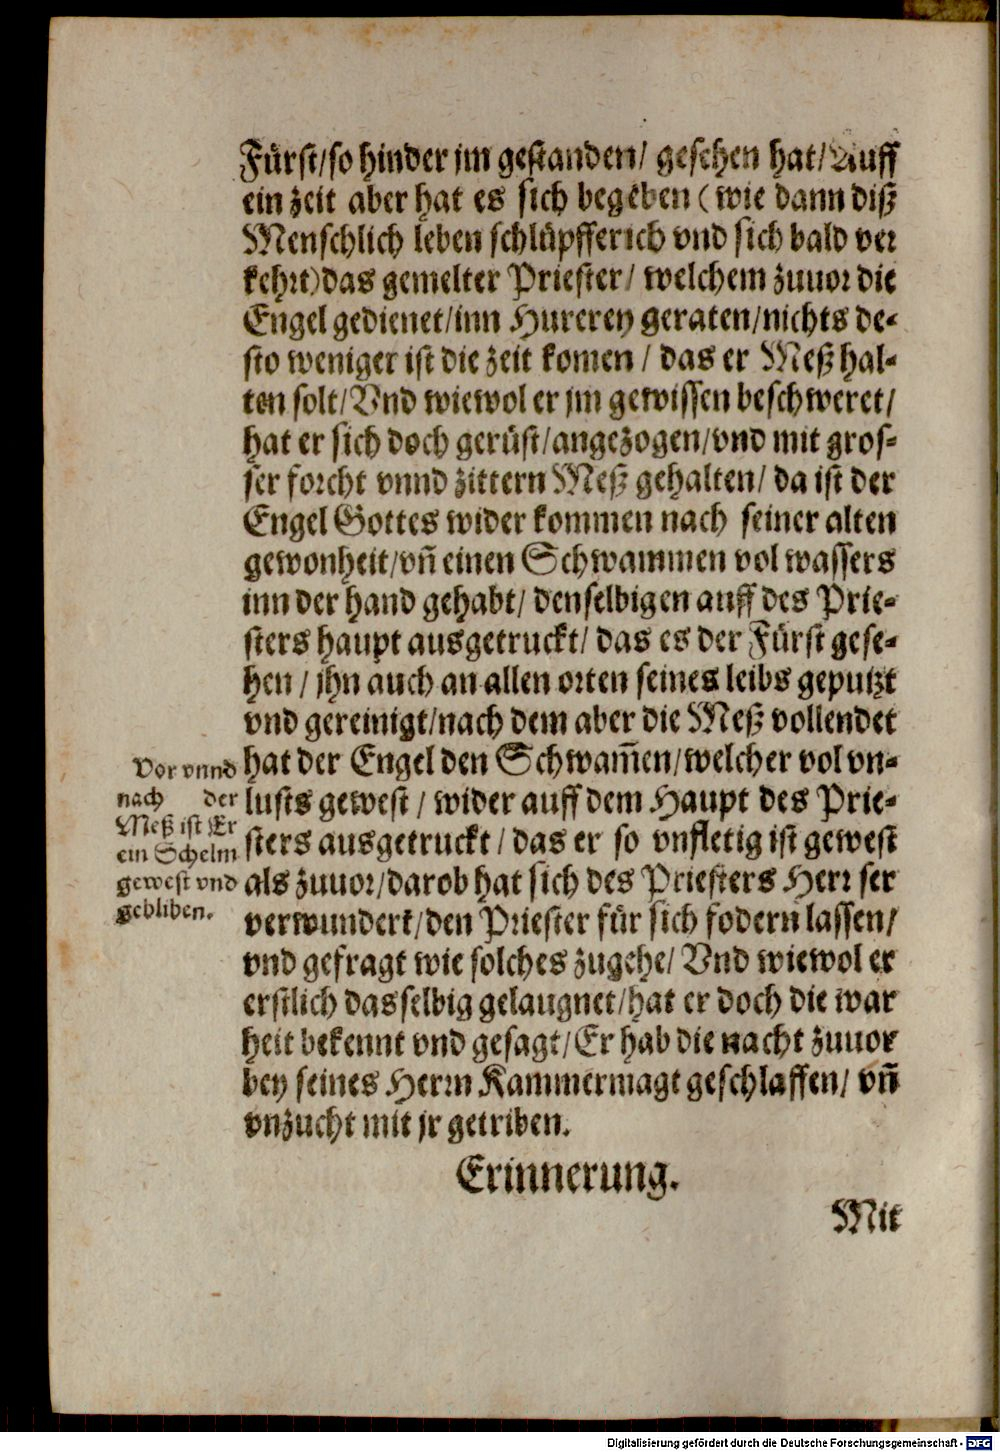 Fürst/so hinder jm gestanden/ gesehen hat/Auff
ein zeit aber hat es sich begeben (wie dann diß
Menschlich leben schlüpfferich vnd sich bald ver
kehrt)das gemelter Priester/ welchem zuuor die
Engel gedienet/inn Hurerey geraten/nichts de-
sto weniger ist die zeit komen / das er Meß hal-
ten solt/Vnd wiewol er jm gewissen beschweret/
hat er sich doch gerüst/angezogen/vnd mit gros-
ser forcht vnnd zittern Meß gehalten/ da ist der
Engel Gottes wider kommen nach seiner alten
gewonheit/vñ einen Schwammen vol wassers
inn der hand gehabt/ denselbigen auff des Prie-
sters haupt ausgetruckt/ das es der Fürst gese-
hen / jhn auch an allen orten seines leibs geputzt
vnd gereinigt/nach dem aber die Meß vollendet
hat der Engel den Schwam̃en/welcher vol vn-
lusts gewest / wider auff dem Haupt des Prie-
sters ausgetruckt / das er so vnfletig ist gewest
als zuuor/darob hat sich des Priesters Herr ser
verwundert/den Priester für sich fodern lassen/
vnd gefragt wie solches zugehe/ Vnd wiewol er
erstlich dasselbig gelaugnet/hat er doch die war
heit bekennt vnd gesagt/Er hab die nacht zuuor
bey seines Herrn Kammermagt geschlaffen/ vñ
vnzucht mit jr getriben.
Vor vnnd
nach der
Meß ist Er
ein Schelm
gewest vnd
gebliben.
Erinnerung.
Mit
Digitalisierung gefördert durch die Deutsche Forschungsgemeinschaft - DFG